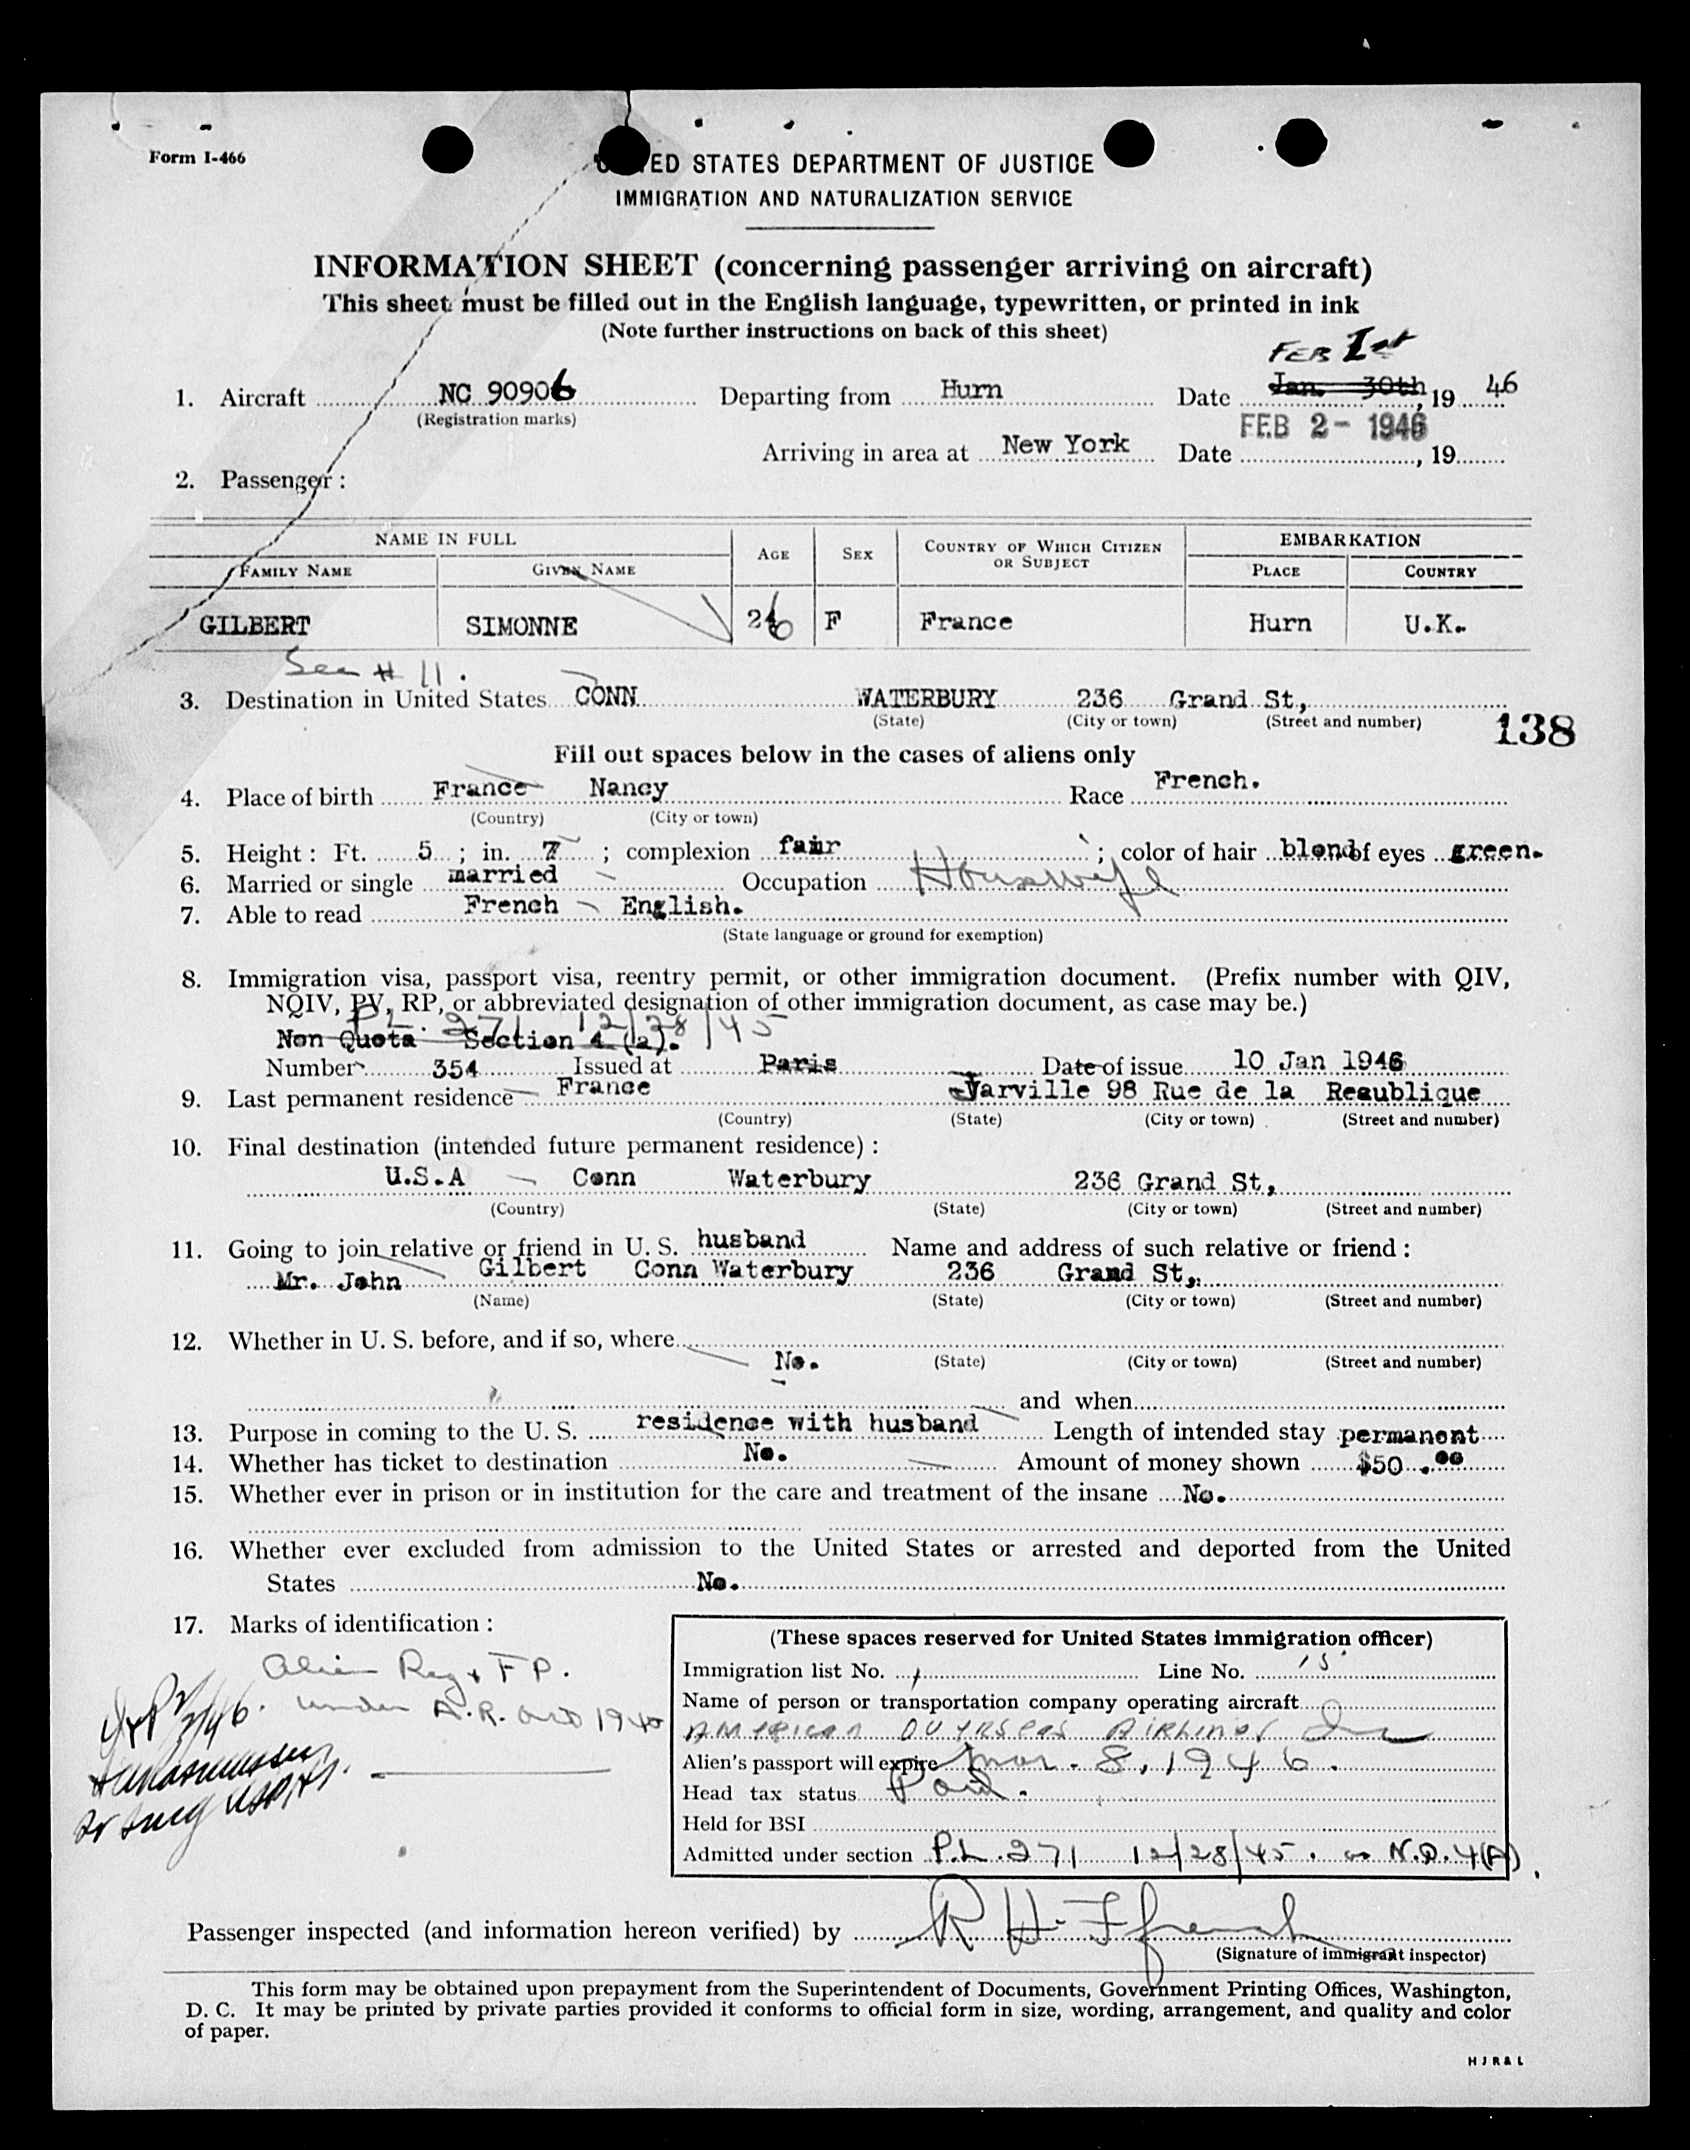 Form I-466
UNITED STATES DEPARTMENT OF JUSTICE
IMMIGRATION AND NATURALIZATION SERVICE
INFORMATION SHEET (concerning passenger arriving on aircraft)
This sheet must be filled out in the English language, typewritten, or printed in ink
(Note further instructions on back of this sheet)
FEB 1st
1. Aircraft NC 90906 Departing from Hurn Date Jan. 30th, 19 46
(Registration marks)
FEB 2 - 1946
Arriving in area at New York Date , 19
2. Passenger :
NAME IN FULL AGE SEX COUNTRY OF WHICH CITIZEN OR SUBJECT EMBARKATION
FAMILY NAME GIVEN NAME PLACE COUNTRY
GILBERT SIMONNE 26 F France Hurn U.K.
See # 11.
3. Destination in United States CONN WATERBURY 236 Grand St,
(State) (City or town) (Street and number)
138
Fill out spaces below in the cases of aliens only
4. Place of birth France Nancy Race French.
(Country) (City or town)
5. Height : Ft. 5 ; in. 7 ; complexion fair ; color of hair blond of eyes green.
6. Married or single married Occupation Housewife
7. Able to read French English.
(State language or ground for exemption)
8. Immigration visa, passport visa, reentry permit, or other immigration document. (Prefix number with QIV,
NQIV, PV, RP, or abbreviated designation of other immigration document, as case may be.)
P.L. 271 12/28/45
Non Quota Section 4 (a).
Number 354 Issued at Paris Date of issue 10 Jan 1946
9. Last permanent residence France Jarville 98 Rue de la Reaublique
(Country) (State) (City or town) (Street and number)
10. Final destination (intended future permanent residence) :
U.S.A Conn Waterbury 236 Grand St,
(Country) (State) (City or town) (Street and number)
11. Going to join relative or friend in U. S. husband Name and address of such relative or friend :
Mr. John Gilbert Conn Waterbury 236 Grand St,
(Name) (State) (City or town) (Street and number)
12. Whether in U. S. before, and if so, where
No. (State) (City or town) (Street and number)
and when
13. Purpose in coming to the U. S. residence with husband Length of intended stay permanent
14. Whether has ticket to destination No. Amount of money shown $50.00
15. Whether ever in prison or in institution for the care and treatment of the insane No.
16. Whether ever excluded from admission to the United States or arrested and deported from the United
States No.
17. Marks of identification :
Alien Reg + F P.
under A.R. act 1940
2/2/46.
(These spaces reserved for United States immigration officer)
Immigration list No. 1 Line No. 15
Name of person or transportation company operating aircraft
American Overseas Airlines Inc
Alien's passport will expire Mar. 8, 1946.
Head tax status Paid.
Held for BSI
Admitted under section P.L. 271 12/28/45. as N.Q. 4(A).
Passenger inspected (and information hereon verified) by R H Ffrench
(Signature of immigrant inspector)
This form may be obtained upon prepayment from the Superintendent of Documents, Government Printing Offices, Washington,
D. C. It may be printed by private parties provided it conforms to official form in size, wording, arrangement, and quality and color
of paper.
H J R & L